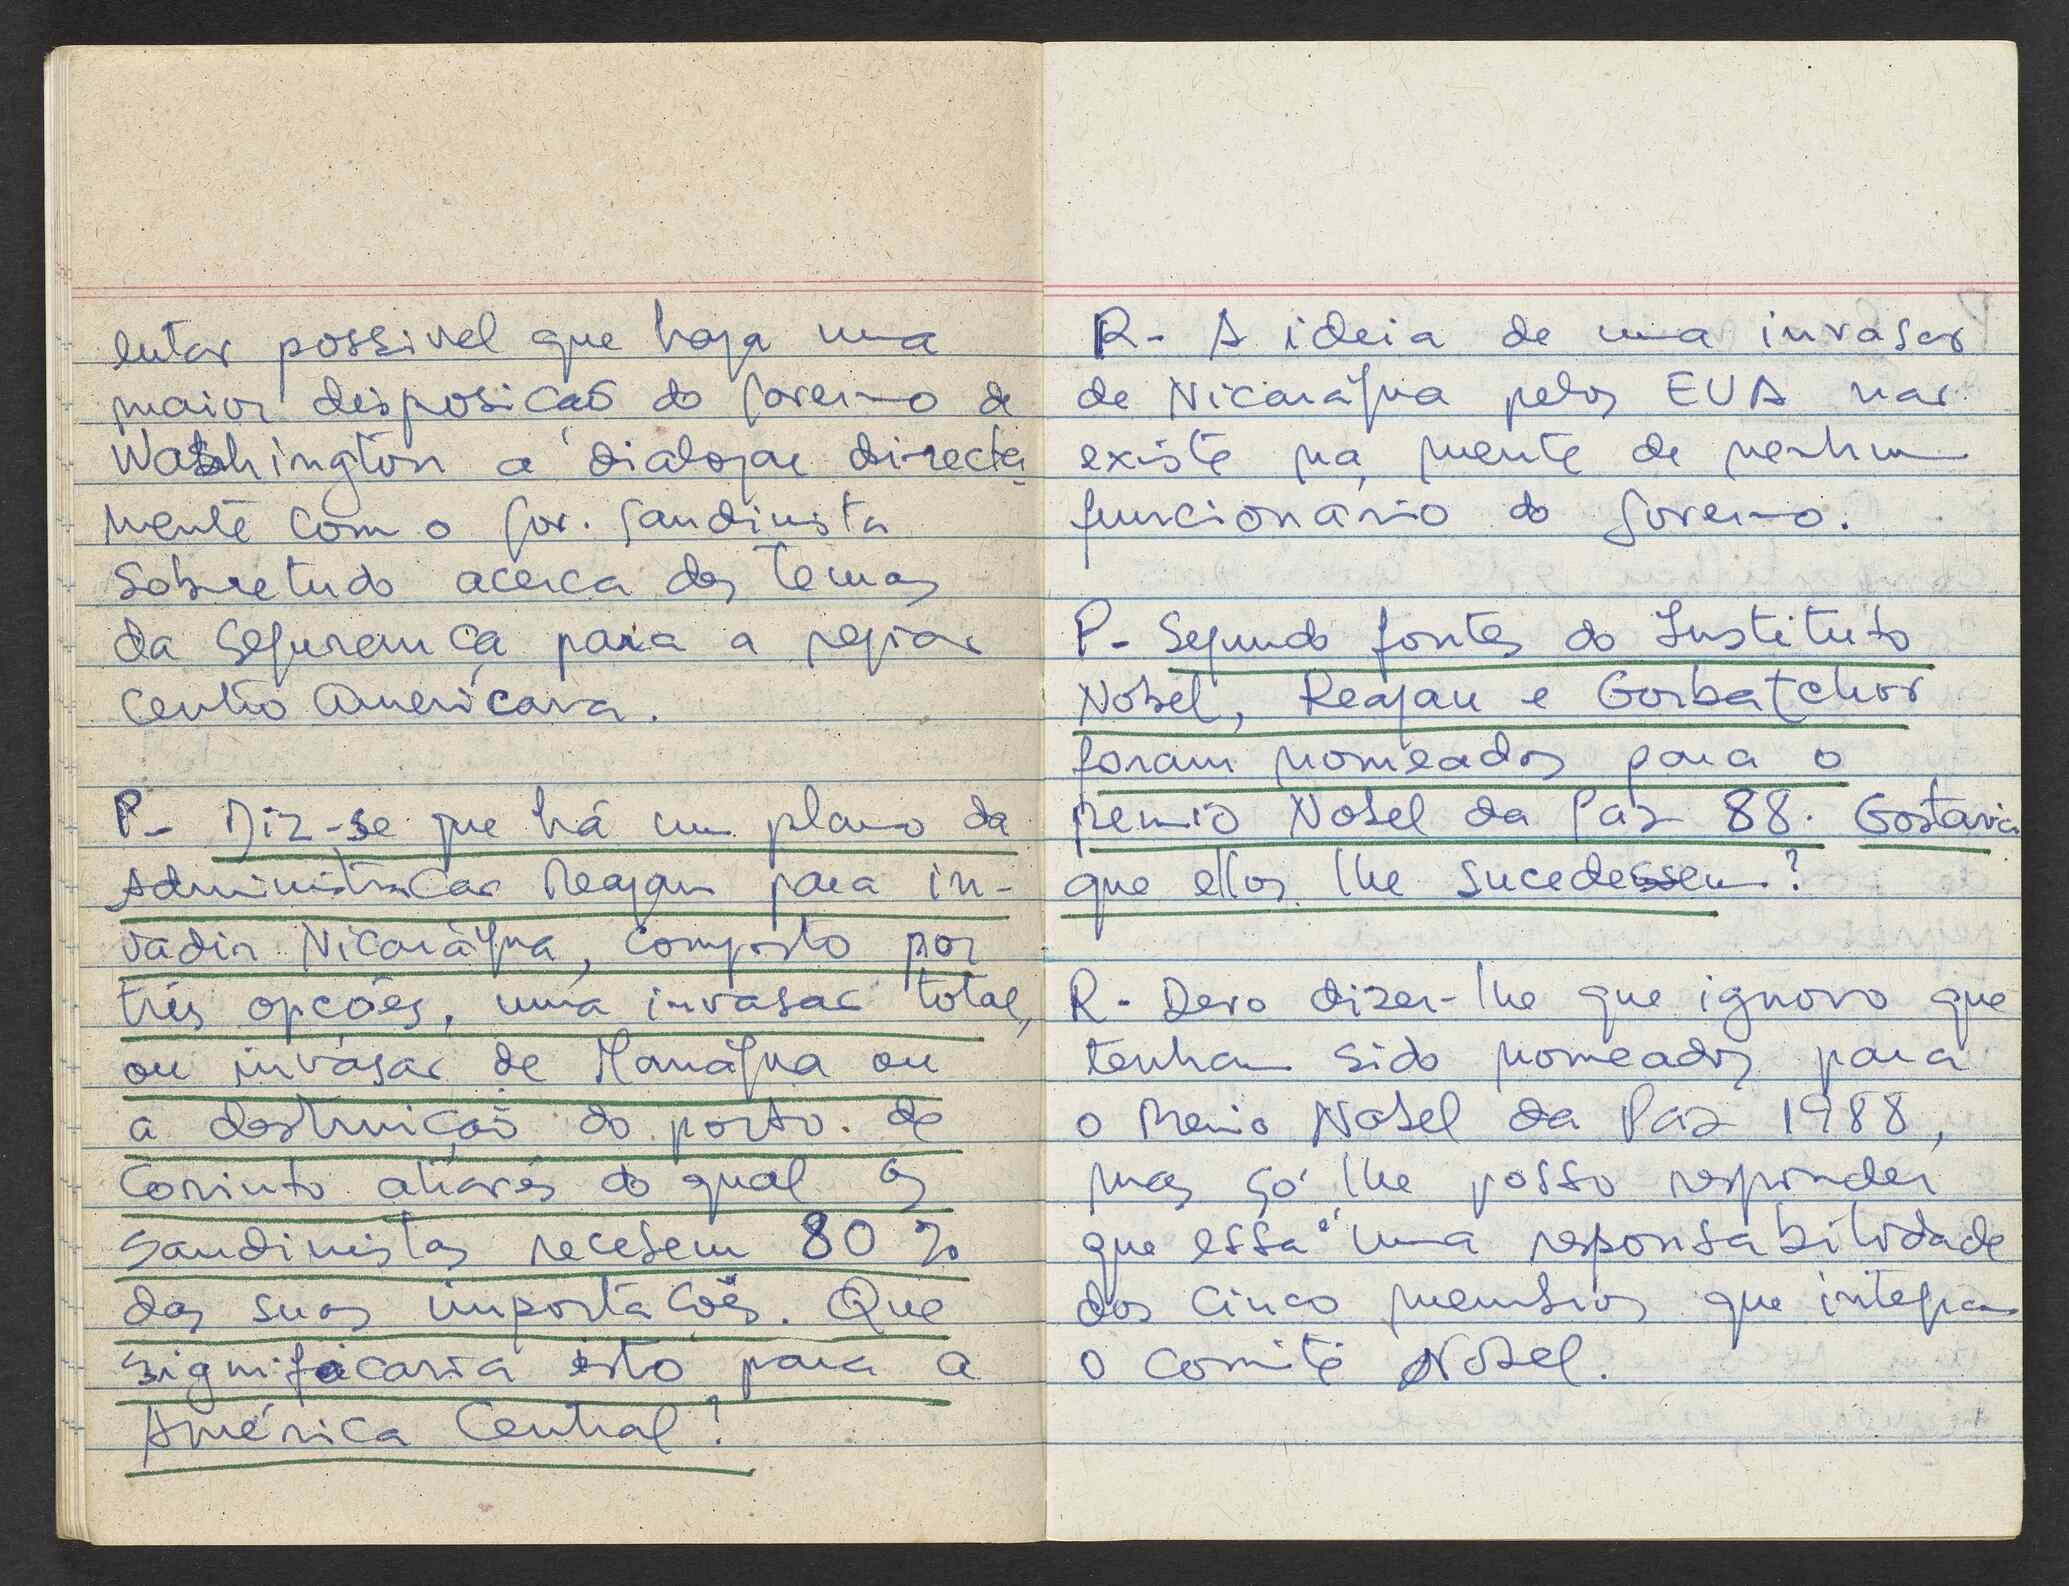 entar possivel que haja uma
maior disposição do Governo de
Washington a dialogar directa-
mente com o Gov. Sandinista
sobretudo acerca dos temas
da segurança para a região
centro americana.
P- Diz-se que há um plano da
Administração Reagan para in-
vadir Nicarágua, composto por
três opções, uma invasão total,
ou invasão de Manágua ou
a destruição do porto de
Corinto através do qual os
sandinistas recebem 80%
das suas importações. Que
significaria isto para a
América Central?
R- A ideia de uma invasão
de Nicarágua pelos EUA não
existe na mente de nenhum
funcionário do Governo.
P- Segundo fontes do Instituto
Nobel, Reagan e Gorbatchov
foram nomeados para o
premio Nobel da Paz 88. Gostaria
que ellos lhe sucedessem?
R- Devo dizer-lhe que ignoro que
tenham sido nomeados para
o Premio Nobel da Paz 1988,
mas só lhe posso responder
que essa é uma responsabilidade
dos cinco membros que integram
o comité Nobel.